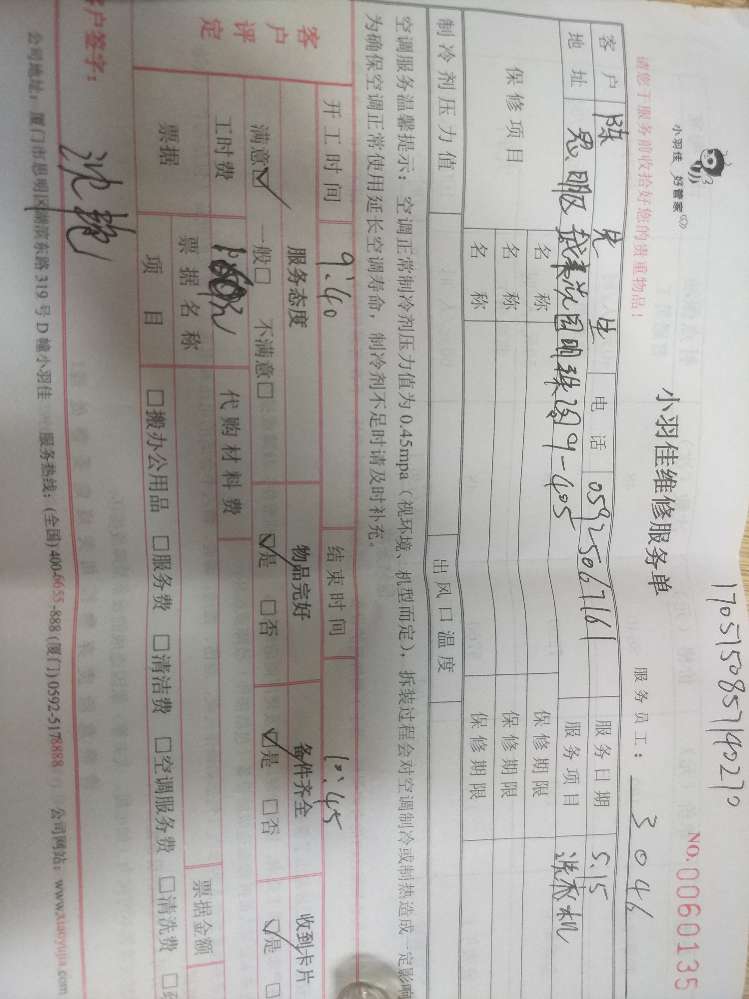 1705150857140270
小羽佳 好管家
NO.0060135
小羽佳维修服务单
请您于服务前收拾好您的贵重物品！
服务员工： 3046
客户 陈先生 电话 05925067161 服务日期 5.15
地址 思明区 园明珠 9-405 服务项目 洗衣机
保修项目
名称 保修期限
名称 保修期限
名称 保修期限
制冷剂压力值 出风口温度
空调服务温馨提示：空调正常制冷剂压力值为0.45mpa（视环境、机型而定），拆装过程会对空调制冷或制热造成一定影响
为确保空调正常使用延长空调寿命，制冷剂不足时请及时补充。
开工时间 9:40 结束时间 10:45
客户评定
服务态度 物品完好 备件齐全 收到卡片
满意☑ 一般□ 不满意□ ☑是 □否 ☑是 □否 ☑是 □
工时费 代购材料费
票据 票据名称 票据金额
项目 □搬办公用品 □服务费 □清洁费 □空调服务费 □清洗费
客户签字： 沈艳
公司地址：厦门市思明区湖滨东路319号D幢小羽佳 服务热线：(全国)400-6655-888 (厦门)0592-5178888 公司网站：www.xiaoyujia.com